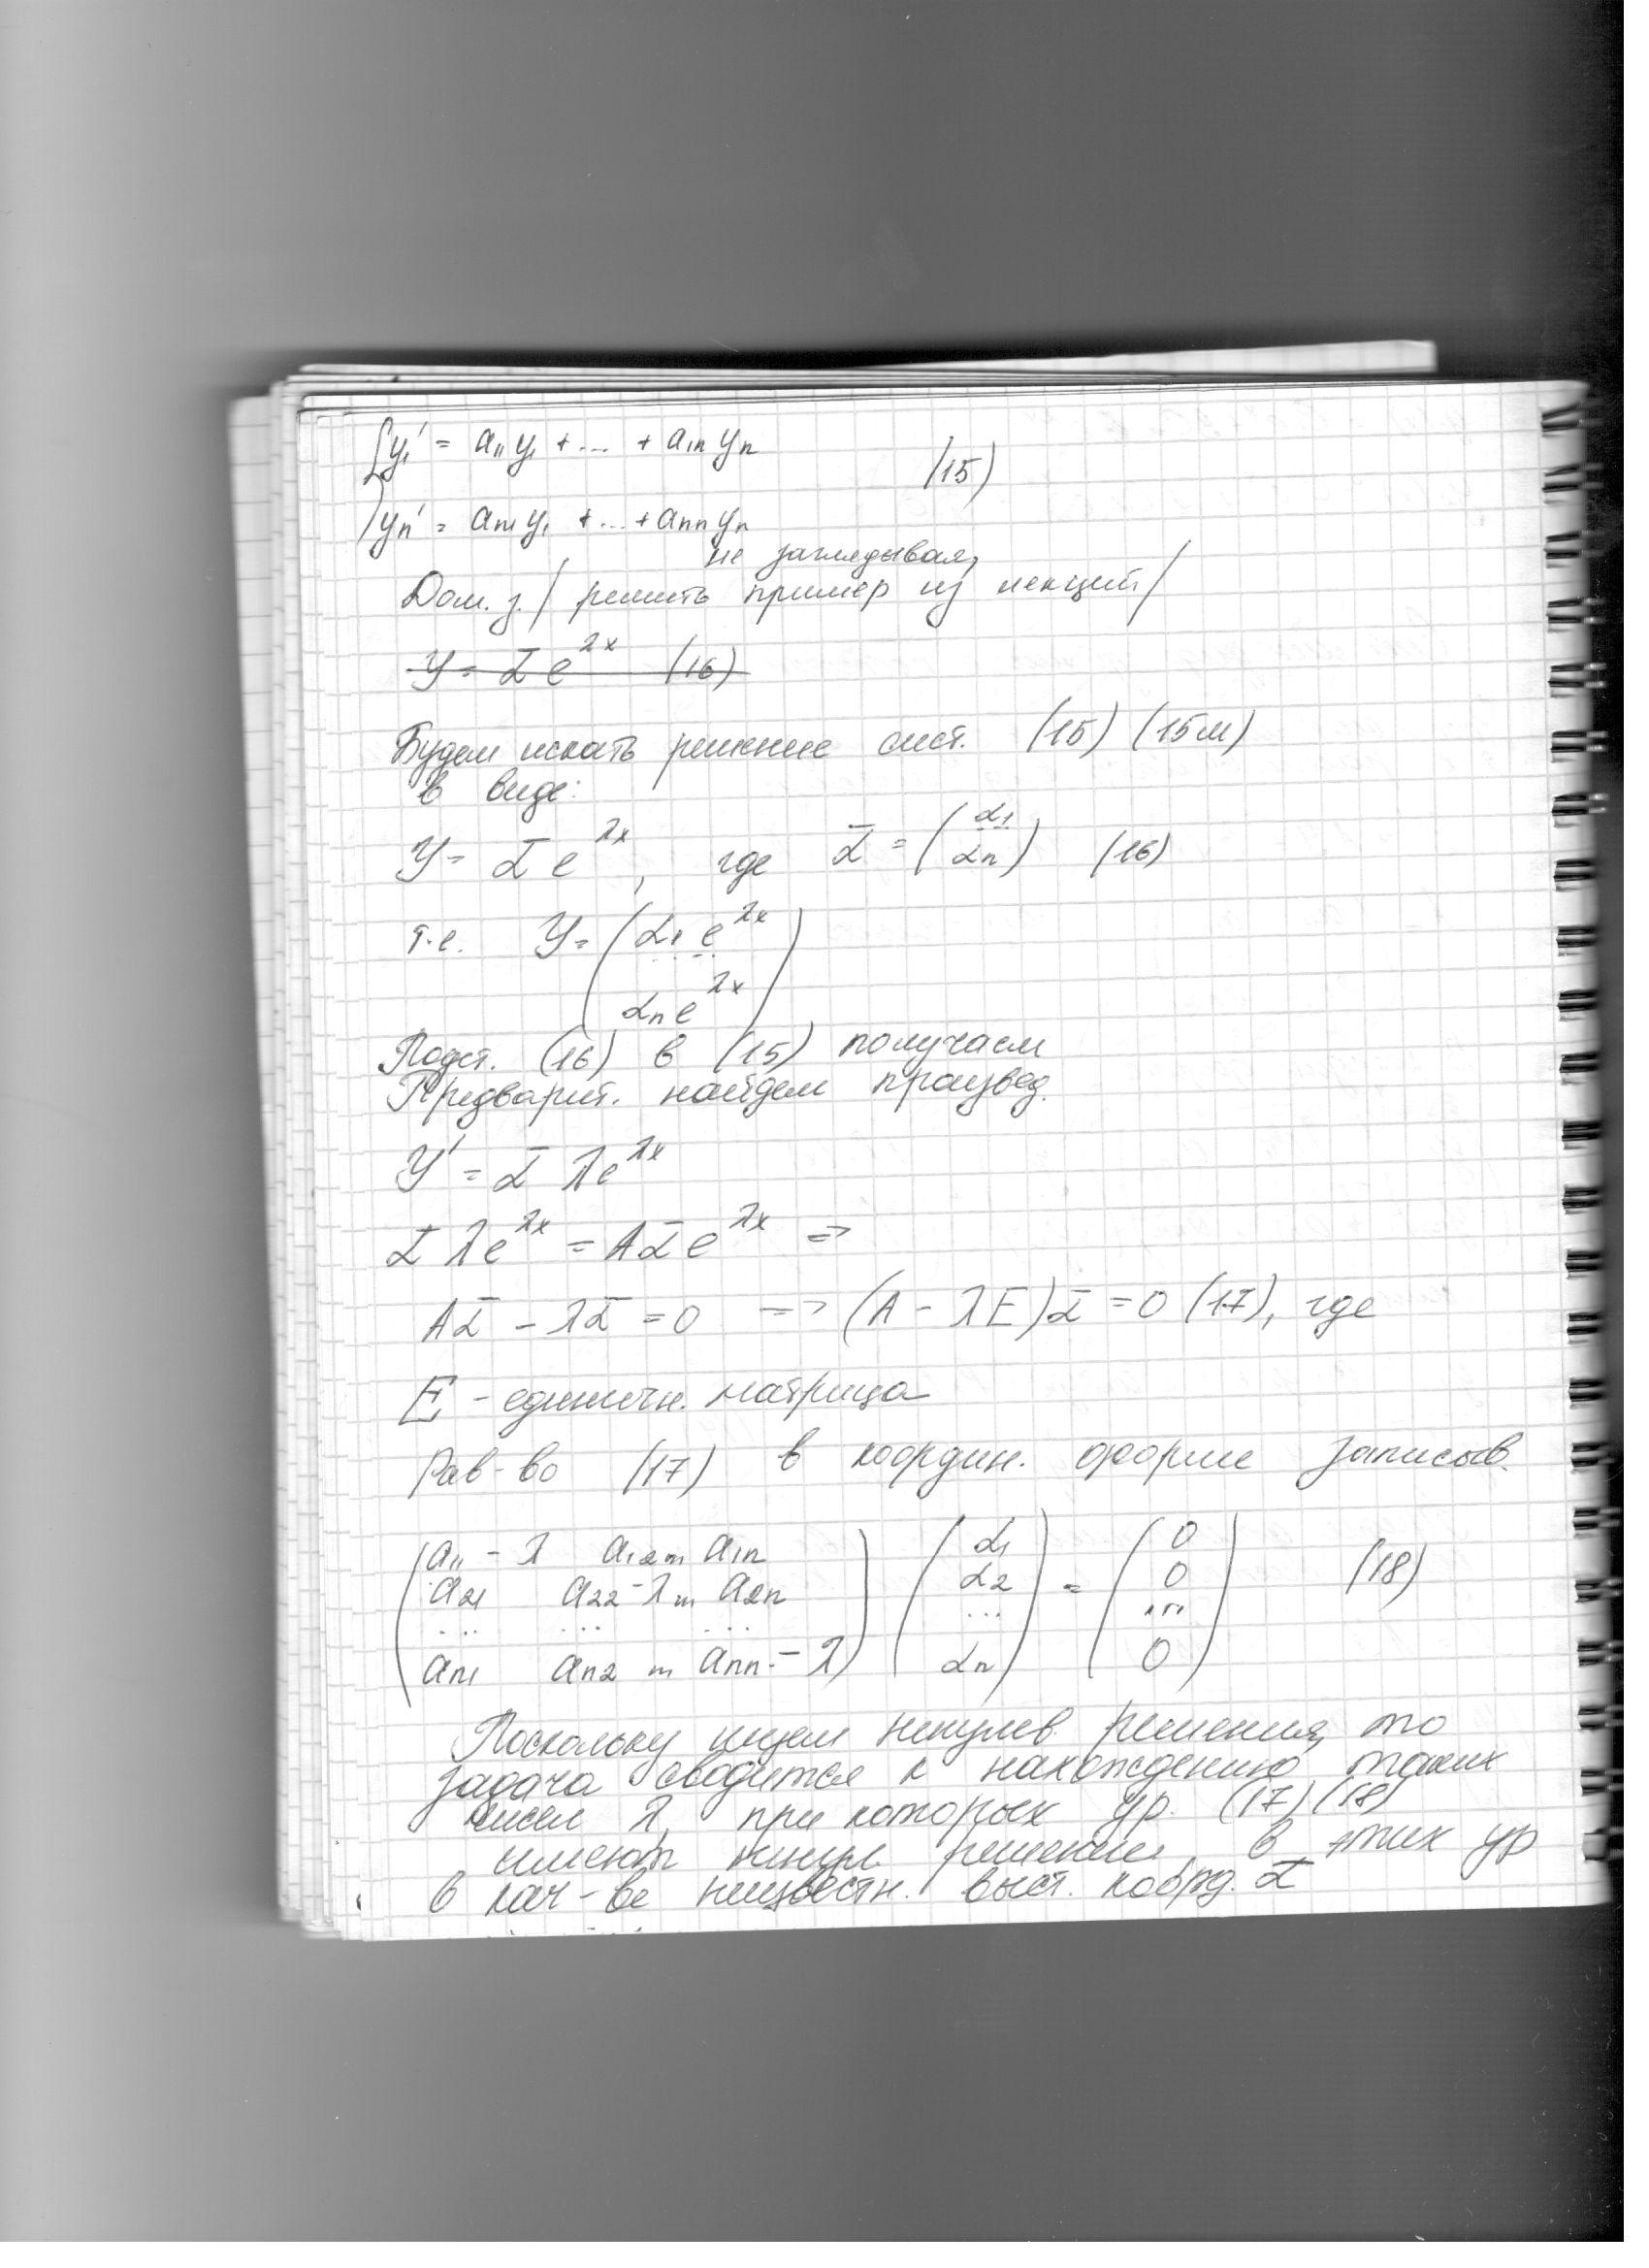 { y₁' = a₁₁y₁ + ... + a₁ₙyₙ
(15)
yₙ' = aₙ₁y₁ + ... + aₙₙyₙ
не заглядывая,
Дом. з. / решить пример из лекций /
Y = ᾱ e^λx (16)
Будем искать решение сист. (15) (15м)
в виде:
Y = ᾱ e^λx, где ᾱ = (α₁ ... αₙ) (16)
т.е. Y = (α₁ e^λx
...
αₙ e^λx)
Подст. (16) в (15) получаем
Предварит. найдем производ.
Y' = ᾱ λe^λx
ᾱ λe^λx = Aᾱe^λx =>
Aᾱ - λᾱ = 0 => (A - λE)ᾱ = 0 (17), где
E - единичн. матрица
Рав-во (17) в координ. форме записыв.
(a₁₁ - λ a₁₂ ... a₁ₙ) (α₁) = (0)
(a₂₁ a₂₂ - λ ... a₂ₙ) (α₂) = (0) (18)
... ... ... ... ...
(aₙ₁ aₙ₂ ... aₙₙ - λ) (αₙ) (0)
Поскольку ищем ненулев решения, то
задача сводится к нахождению таких
чисел λ, при которых ур. (17) (18)
имеют ненул. решение, в этих ур
в кач-ве неизвестн. выст. коорд. ᾱ